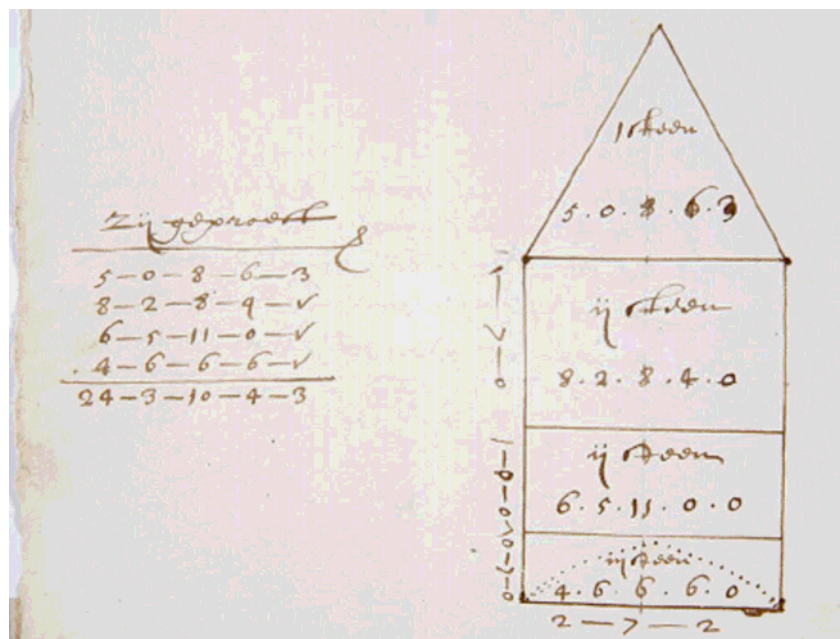 Zij geproeft
5-0-8-6-3
8-2-8-4-v
6-5-11-0-v
4-6-6-6-v
24-3-10-4-3
j steen
5.0.8.6.3
ij steen
8.2.8.4.0
ij steen
6.5.11.0.0
iij steen
4.6.6.6.0
2-7-2